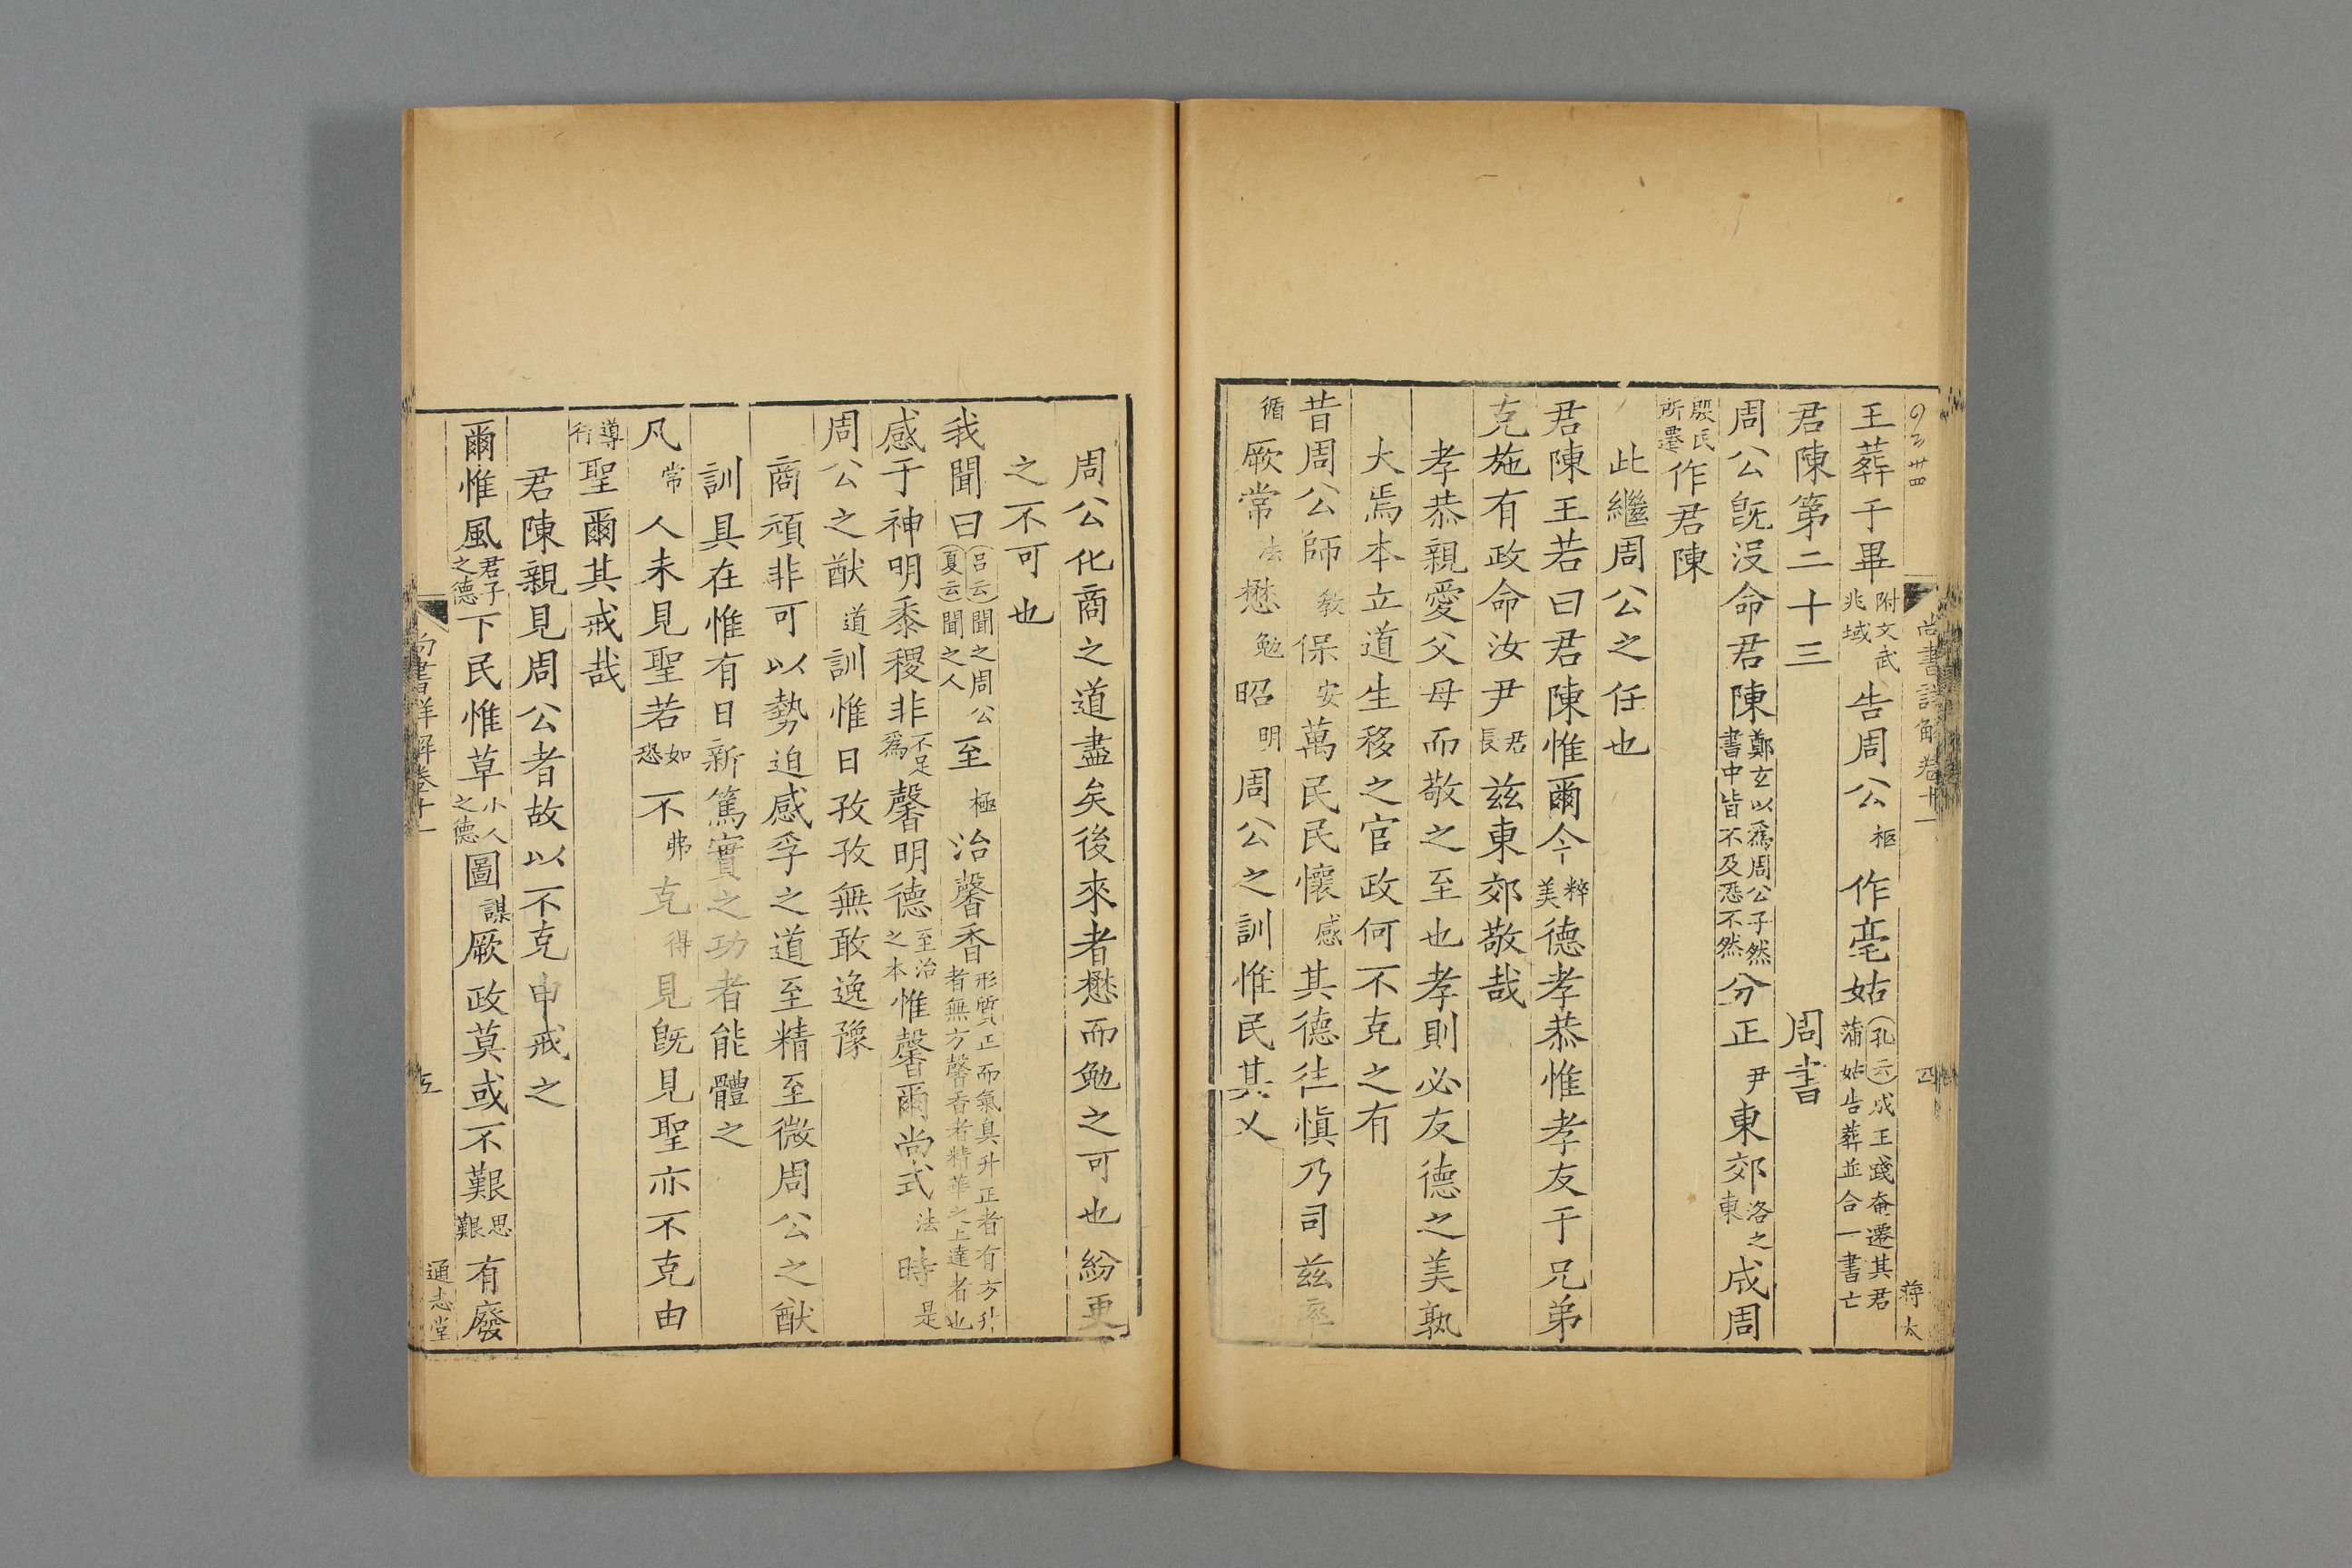 尚書詳解卷十一 四 蔣太
王葬于畢附文武兆域告周公柩作亳姑孔云成王踐奄遷其君蒲姑告葬並合一書亡
君陳第二十三 周書
周公旣沒命君陳鄭玄以爲周公子然書中皆不及恐不然分正尹東郊洛之東成周
殷民所遷作君陳
此繼周公之任也
君陳王若曰君陳惟爾令粹美德孝恭惟孝友于兄弟
克施有政命汝尹君長玆東郊敬哉
孝恭親愛父母而敬之至也孝則必友德之美孰
大焉本立道生移之官政何不克之有
昔周公師教保安萬民民懷感其德往愼乃司玆率
循厥常法懋勉昭明周公之訓惟民其乂
周公化商之道盡矣後來者懋而勉之可也紛更
之不可也
我聞曰呂云聞之周公夏云聞之人至極治馨香形質正而氣臭升正者有方升者無方馨香者精華之上達者也
感于神明黍稷非不足爲馨明德至治之本惟馨爾尚式法時是
周公之猷道訓惟日孜孜無敢逸豫
商頑非可以勢迫感孚之道至精至微周公之猷
訓具在惟有日新篤實之功者能體之
凡常人未見聖若如恐不弗克得見旣見聖亦不克由
導行聖爾其戒哉
君陳親見周公者故以不克申戒之
爾惟風君子之德下民惟草小人之德圖謀厥政莫或不艱思艱有廢
尚書詳解卷十一 五 通志堂